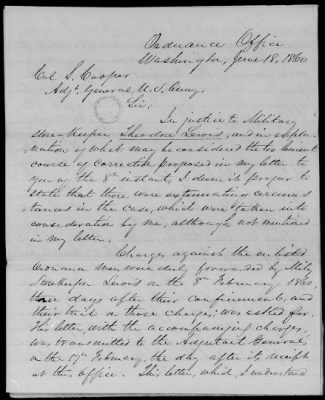 Ordnance Office
Washington, June 18, 1860
Col S. Cooper
Adjt. General, U.S. Army.
Sir:
In justice to Military
Storekeeper Theodore Lewis, and in expla-
nation of what may be considered the too lenient
course of correction proposed in my letter to
you of the 8th instant, I deem it proper to
state that there were extenuating circums-
tances in the case, which were taken into
consideration by me, although not mentioned
in my letter.
Charges against the enlisted
Ordnance men were duly forwarded by Mily
Storekeeper Lewis on the 8th February 1860,
days after their confinement, and
their trial on those charges, was asked for.
His letter, with the accompanying charges,
was transmitted to the Adjutant General,
on the 17th February, the day after its receipt
at this office. This letter, which, I understand